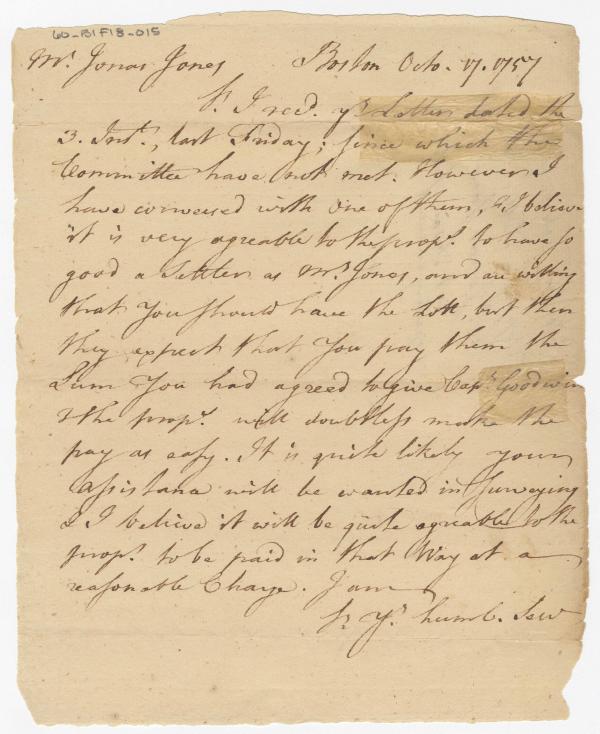 60-B1F18-015
Mr. Jonas Jones Boston Octo. 17. 1757
Sr. I recd. yr. Letter dated the
3. Inst., last Friday; since which the
Committee have not met. However I
have conversed with one of them, & I believe
it is very agreable to the propr. to have so
good a Settler as Mr. Jones, and are willing
that You should have the Lott, but then
they expect that You pay them the
Sum You had agreed to give Capt. Goodwin
& the propr. will doubtless make the
pay as easy. It is quite likely your
assistance will be wanted in Surveying
& I believe it will be quite agreable to the
propr. to be paid in that Way at a
reasonable Charge. I am
Sr. Yr. humb. Serv